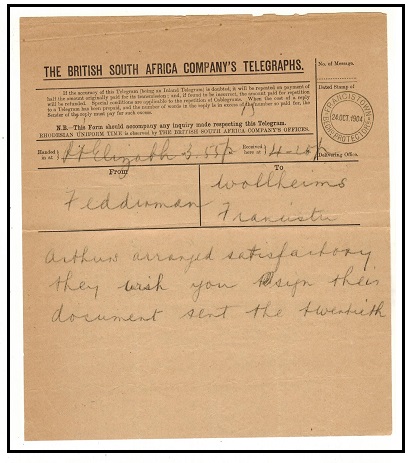 THE BRITISH SOUTH AFRICA COMPANY'S TELEGRAPHS.
No. of Message.
If the accuracy of this Telegram (being an Inland Telegram) be doubted, it will be repeated on payment of
half the amount originally paid for its transmission; and, if found to be incorrect, the amount paid for repetition
will be refunded. Special conditions are applicable to the repetition of Cablegrams. When the cost of a reply
to a Telegram has been prepaid, and the number of words in the reply is in excess of the number so paid for, the
Sender of the reply must pay for such excess.
Dated Stamp of
FRANCISTOWN
24 OCT. 1904
BCH. PROTECTORATE
N.B.—This Form should accompany any inquiry made respecting this Telegram.
RHODESIAN UNIFORM TIME is observed by THE BRITISH SOUTH AFRICA COMPANY'S OFFICES.
Handed in at Pt Elizabeth 3.55 p
Received here at 4-
Delivering Office.
From
To
Wollheims
Francistn
Arthurs arranged satisfactory
they wish you sign their
document sent the twentieth